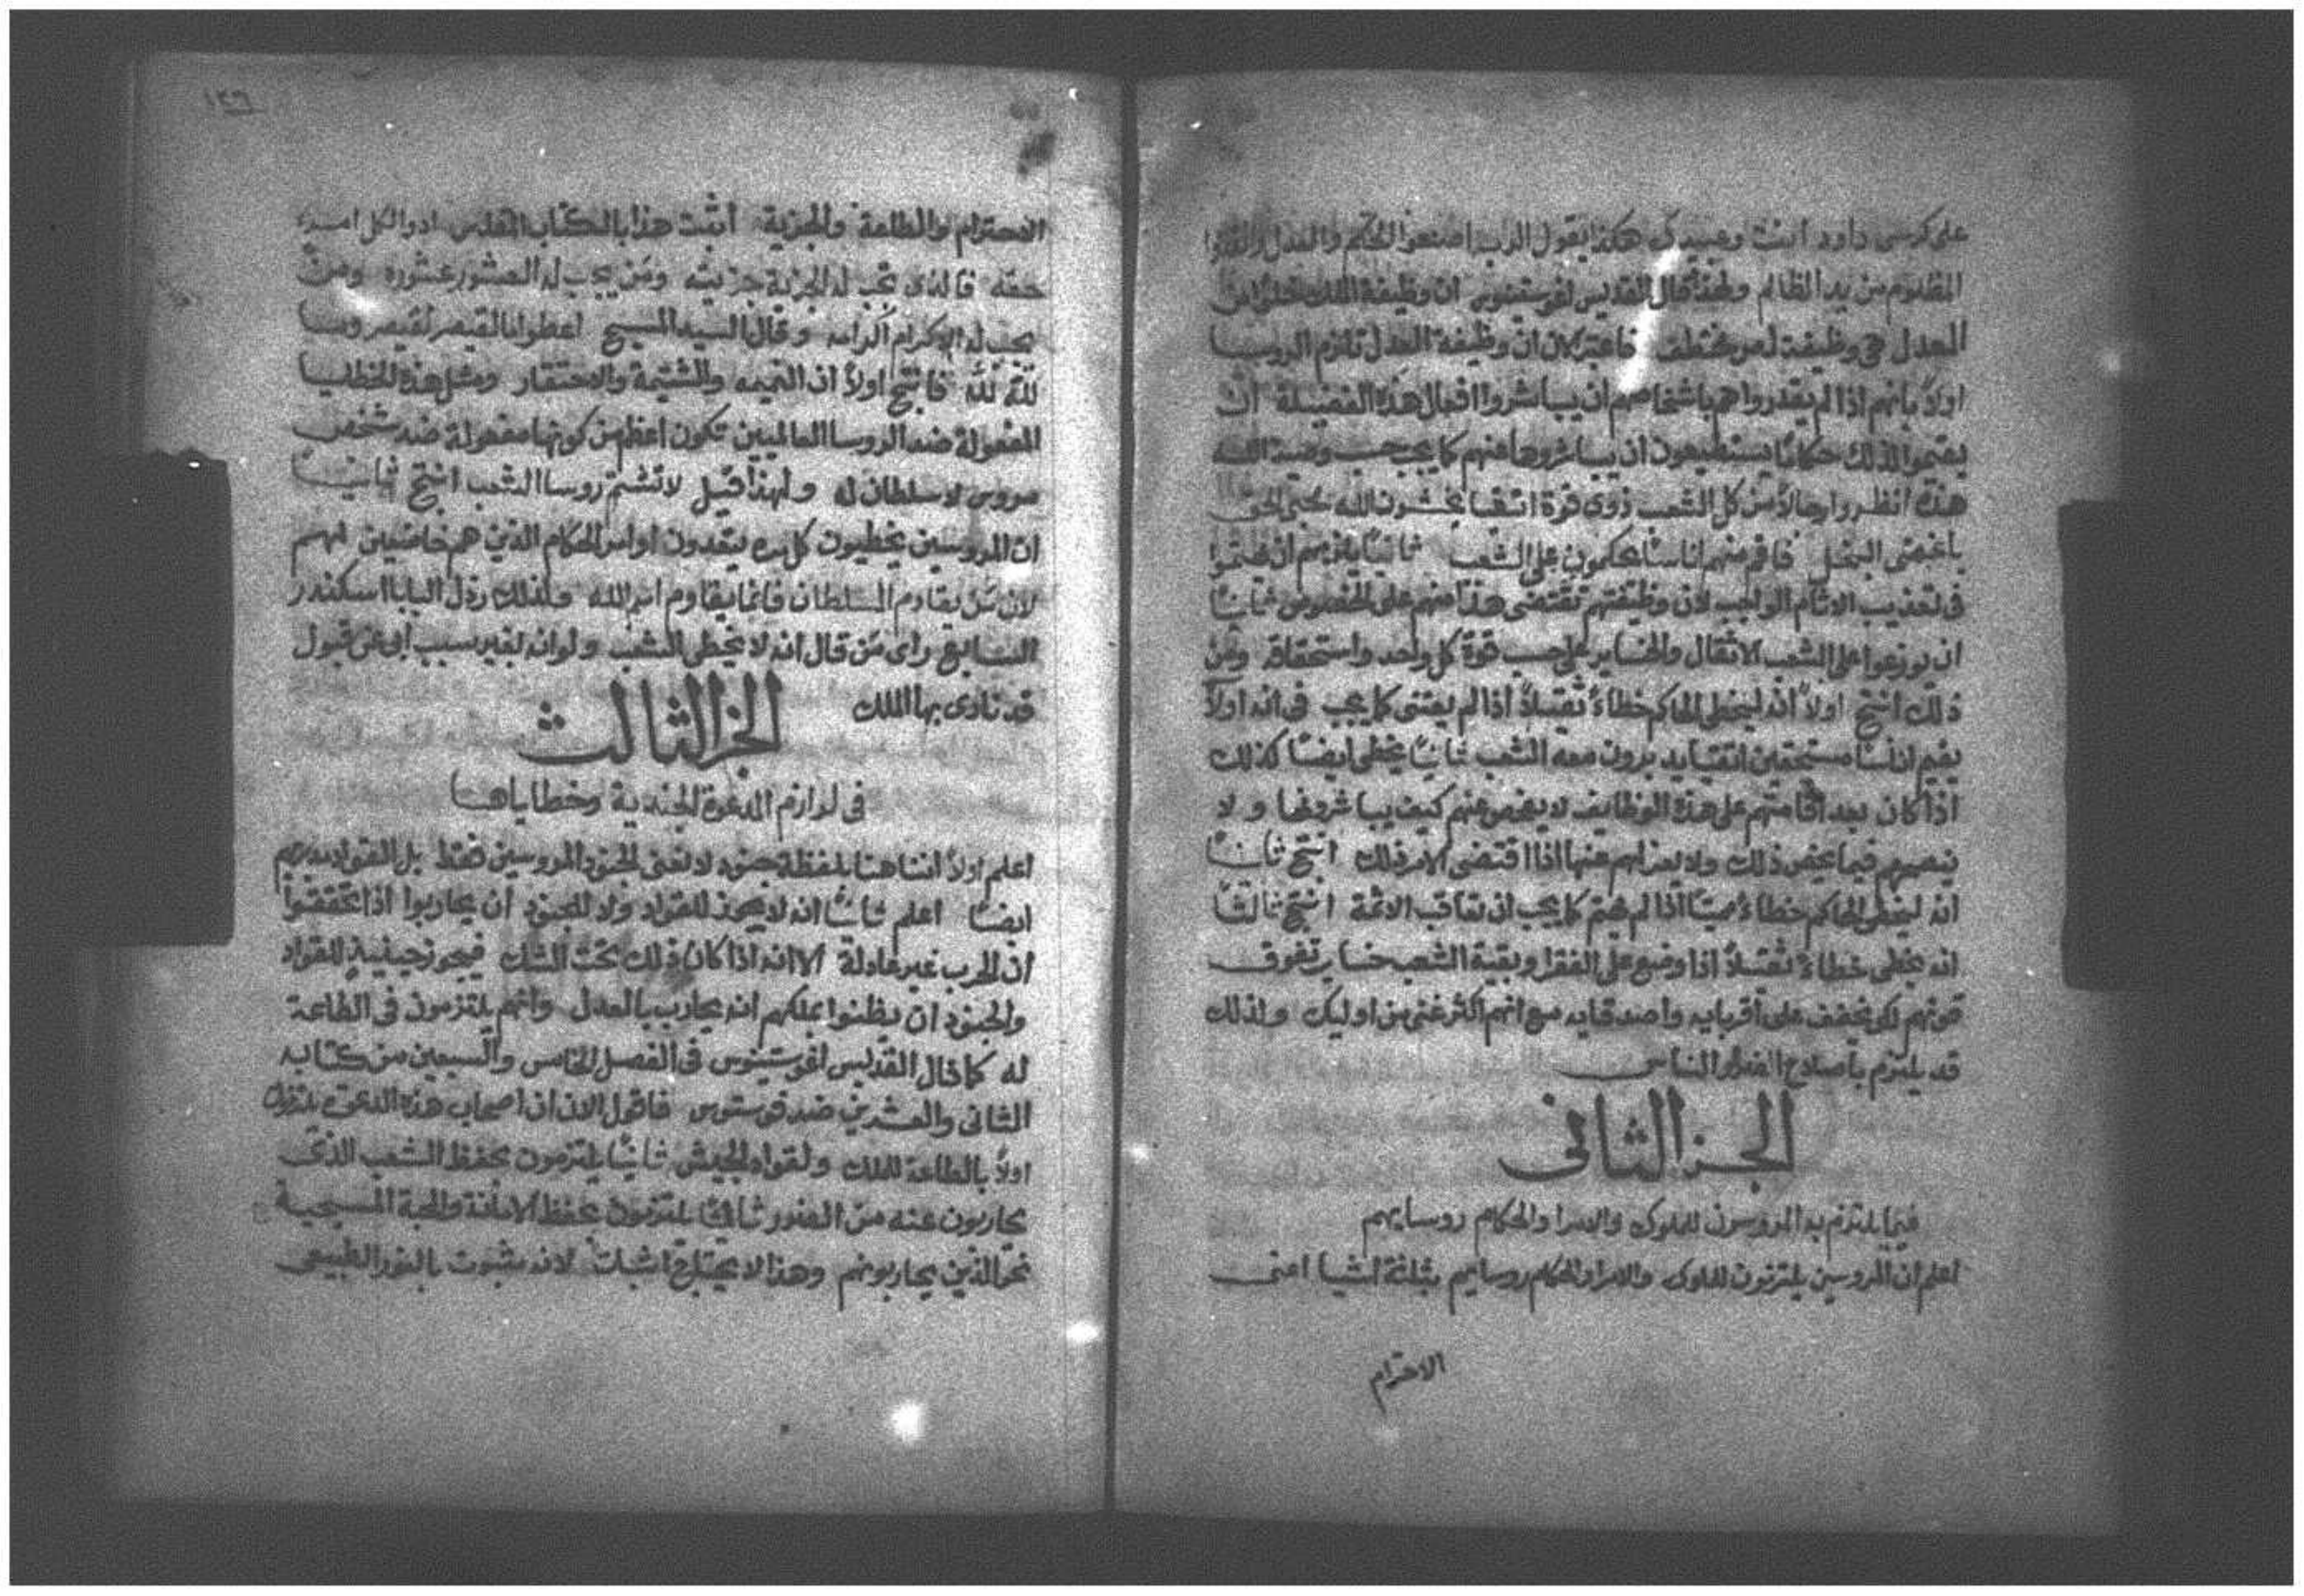 على كرسى داود انت وعبيدك هكذا يقول الرب اصنعوا الحكم والعدل وانقذوا
المظلوم من يد الظالم ولهذا قال القديس اغوستينوس ان وظيفة الملك
العدل هى وظيفة ان وظيفة العدل تلزم الروسا
اولاً بانهم اذا لم يقدروا هم باشخاصهم ان يباشروا افعال هذه الفضيلة ان
يقيموا لذلك حكامًا يستطيعون ان يباشروها عنهم كما يجب حسب وصية الله
هذه انظروا رجالاً من كل الشعب ذوى قوة اتقيا يخشون الله محبى الحق
باغضى البخل فاقم منهم اناسًا يحكمون على الشعب ثانيًا يلزمهم ان يهتموا
فى تعذيب الاثام الواجب لان وظيفتهم تقتضى هذا منهم على الخصوص ثالثًا
ان يوزعوا على الشعب الاثقال والخساير على حسب قوة كل واحد واستحقاقه ومن
ذلك انتج اولاً انه ليخطى الحاكم خطاءً ثقيلاً اذا لم يعتنى كما يجب فى انه اولاً
يقيم اناسًا مستحقين اتقيا يدبرون معه الشعب ثانيًا يخطى ايضًا كذلك
اذا كان بعد اقامتهم على هذه الوظايف لا يفحص عنهم كيف يباشرونها ولا
ينصحهم فيما يخص ذلك ولا يعزلهم عنها اذا اقتضى الامر ذلك انتج ثانيًا
انه ليخطى الحاكم خطاءً مميتًا اذا لم يهتم كما يجب ان تعاقب الاثمة انتج ثالثًا
انه يخطى خطاءً ثقيلاً اذا وضع على الفقرا وبقية الشعب خساير تفوق
قوتهم لكى يخفف على اقربايه واصدقايه مع انهم اكثر غنى من اوليك ولذلك
قد يلتزم باصلاح الضرر الناس
الجز الثانى
فيما يلتزم به المروسون للملوك والامرا والحكام روسايهم
اعلم ان المروسين يلتزمون للملوك والامرا والحكام روسايهم بثلثة اشيا اعنى
الاحترام
١٢٦
الاحترام والطاعة والجزية اثبت هذا بالكتاب المقدس ادوا لكل امرء
حقه فالذى تجب له الجزية جزيته ومن يجب له العشور عشوره ومن
يجب له الاكرام اكرامه وقال السيد المسيح اعطوا ما لقيصر لقيصر وما
لله لله فانتج اولاً ان النميمه والشتيمة والاحتقار ومثل هذه الخطايا
المفعولة ضد الروسا العالميين تكون اعظم من كونها مفعولة ضد شخص
مروس لا سلطان له ولهذا قيل لا تشتم روسا الشعب انتج ثانيًا
ان المروسين يخطيون كل مره يتعدون اوامر الحكام الذين هم خاضعين لهم
لان من يقاوم السلطان فانما يقاوم امر الله ولذلك رذل البابا اسكندر
السابع راى من قال انه لا يخطى الشعب ولو انه لغير سبب ابى عن قبول
قد نادى بها الملك
الجز الثالث
فى لوازم الدعوة الجندية وخطاياها
اعلم اولاً اننا هنا بلفظة جنود لا نعنى الجنود المروسين فقط بل القواد
ايضًا اعلم ثانيًا انه لا يجوز للقواد ولا للجنود ان يحاربوا اذا تحققوا
ان الحرب غير عادلة الا انه اذا كان ذلك تحت الشك فيجوز حينيذٍ للقواد
والجنود ان يظنوا بملكهم انه يحارب بالعدل وانهم يلتزمون فى الطاعة
له كما قال القديس اغوستينوس فى الفصل الخامس والسبعين من كتابه
الثانى والعشرين ضد فوستوس فاقول الان ان اصحاب هذه الدعوة
اولاً بالطاعة للملك ولقواد الجيش ثانيًا يلتزمون بحفظ الشعب الذى
يحاربون عنه من الضرر ثالثًا يلتزمون بحفظ الامانة والمحبة المسيحية
نحو الذين يحاربونهم وهذا لا يحتاج اثبات لانه مثبوت بالنور الطبيعى